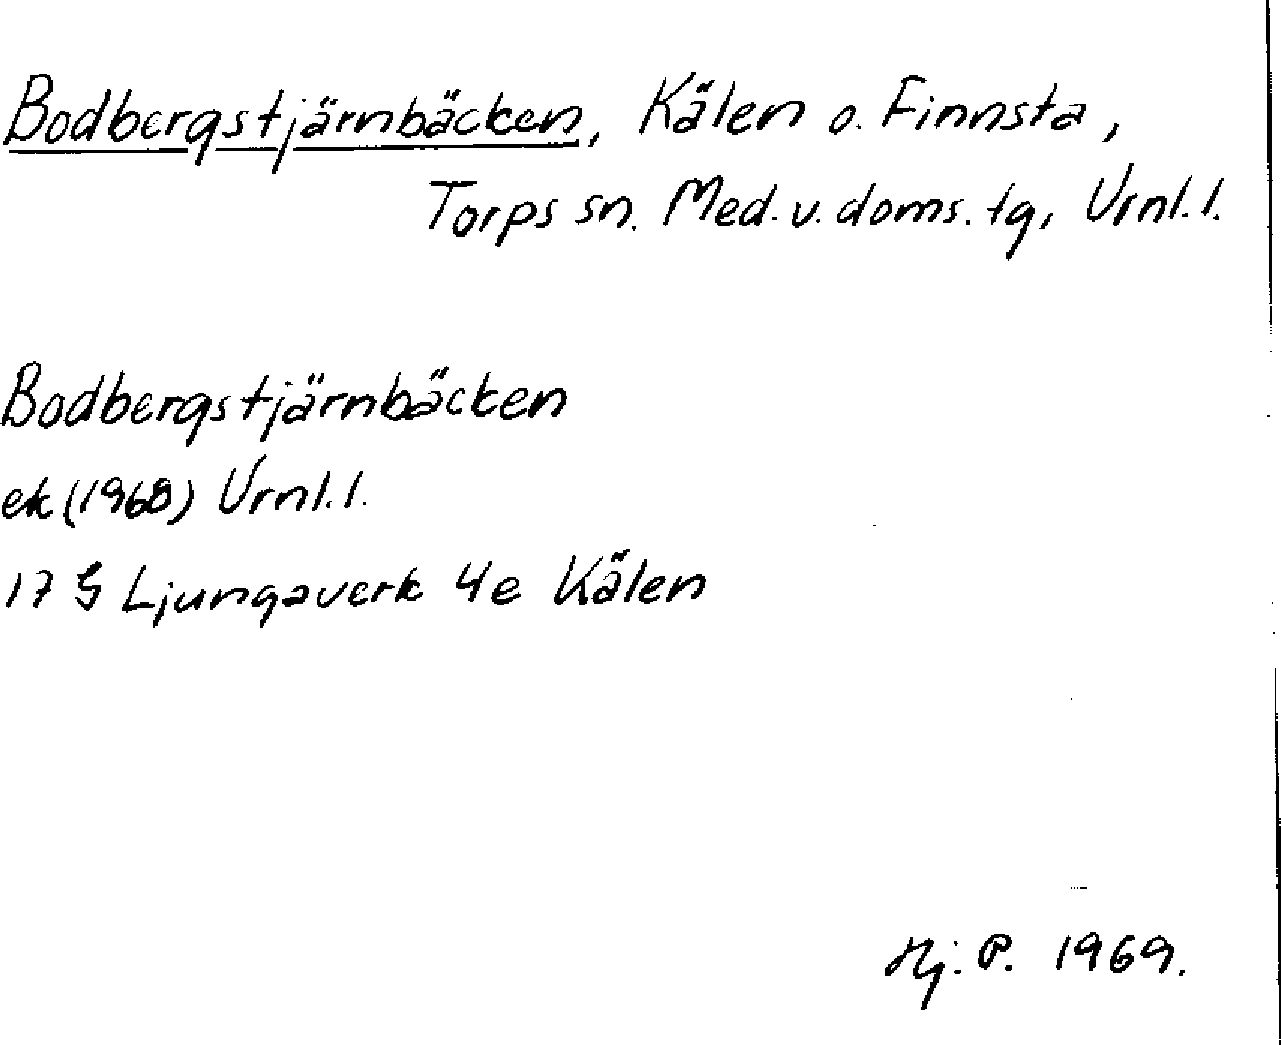 Bodbergstjärnbäcken, Kälen o. Finnsta,
Torps sn. Med. v. doms. tg, Vrnl. l.
Bodbergstjärnbäcken
ek (1968) Vrnl. l.
17 G Ljungaverk 4e Kälen
Hj. P. 1969.